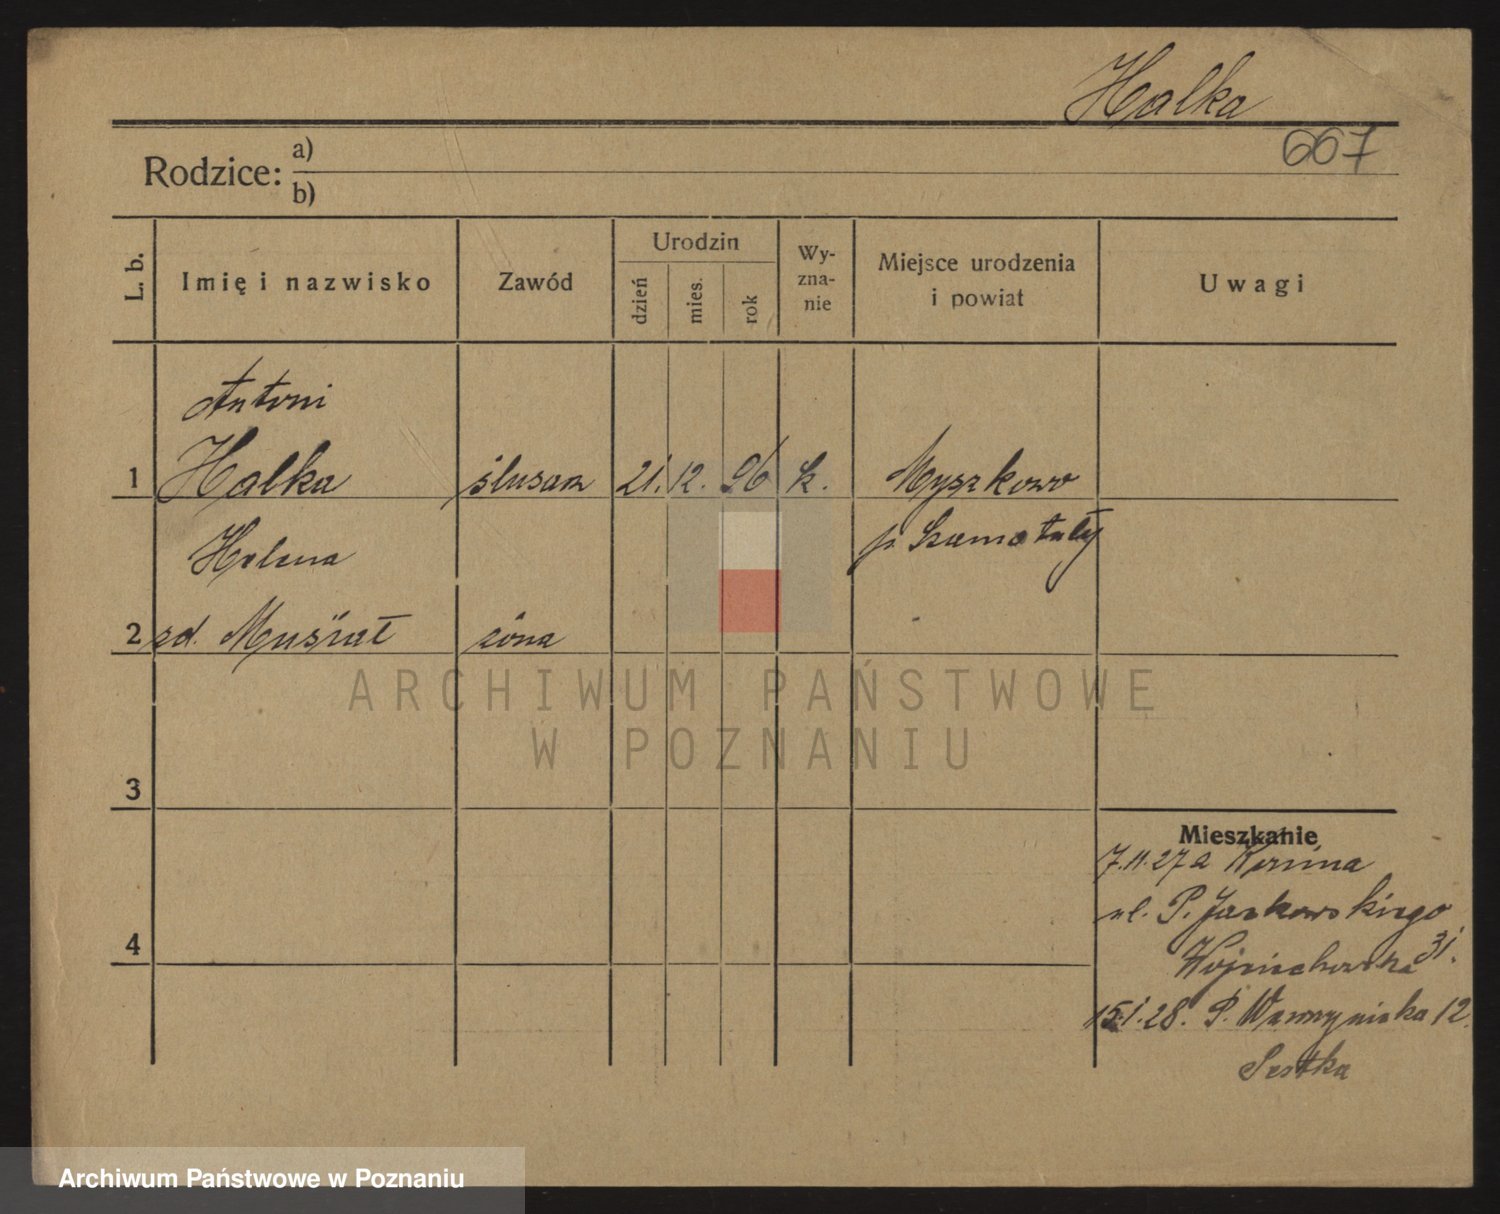 Halka
667
Rodzice: a)
b)
L. b. Imię i nazwisko Zawód Urodzin dzień mies. rok Wy-zna-nie Miejsce urodzenia i powiat Uwagi
Antoni
1 Halka ślusarz 21. 12. 96 k. Myszkowo
Helena p. Szamotuły
2 zd. Musiał żona
ARCHIWUM PAŃSTWOWE
W POZNANIU
3
Mieszkanie
7.11.27 z
ul. P. Jackowskiego
4 Wojciechowska 31.
15.1.28. P. Wawrzyniaka 12.
Archiwum Państwowe w Poznaniu